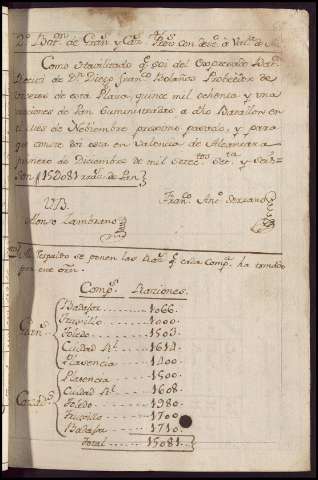 Como Havilitado q.e soi del Expresado Bat.n
Decivi de D.n Diego Fran.co Bolaños Probehedor de
viveres de esta Plaza, quince mil ochenta y una
raciones de Pan suministradas a dho Batallon en
el mes de Nobiembre proximo pasado, y para
que conste doi esta en Valencia de Alcantara
primero de Diciembre de mil setec.tos set.ta y
Son {15081 rac.s de Pan}
V.B.
Fran.co Ant.o Serrano
Alonso Zambrano
Al respaldo se ponen las Rac.s q.e cada Comp.a ha tomado
por este orn.
Comp.s Raciones.
Badajoz 1066
Truxillo 1000
Toledo 1503
Ciudad R.l 1614
Plasencia 1400
Gran.s
Plasencia 1500
Ciudad R.l 1608
Toledo 1980
Truxillo 1700
Badajoz 1710
Cazad.s
Total 15081